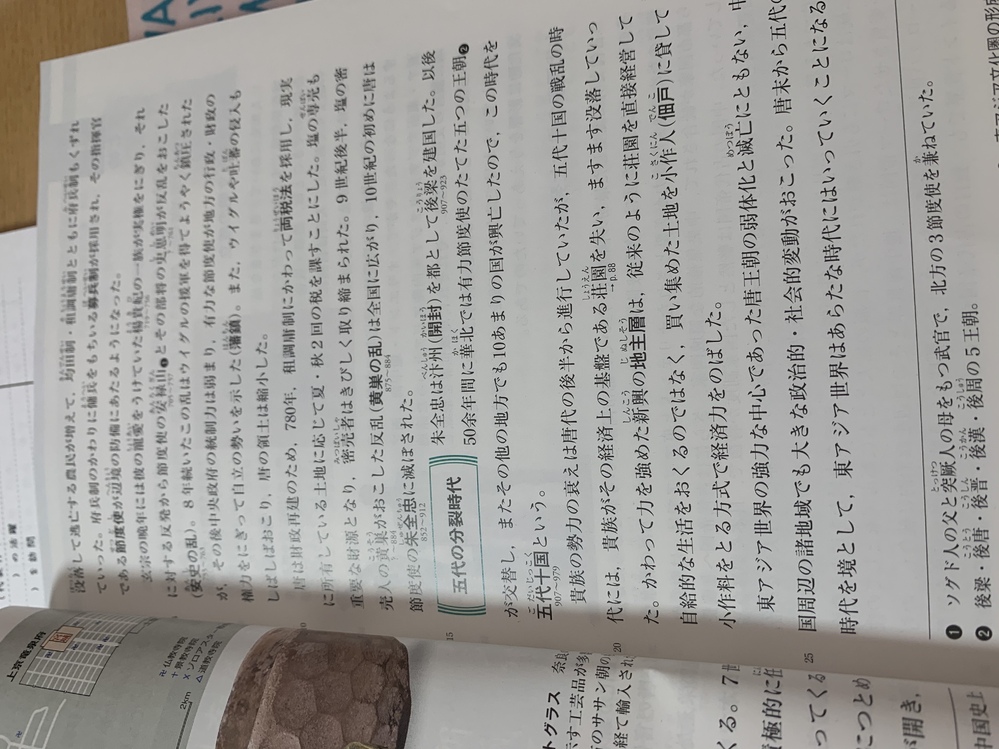 没落して逃亡する農民が増えて，均田制・租調庸制とともに府兵制もくずれ
ていった。府兵制のかわりに傭兵をもちいる募兵制が採用され，その指揮官
である節度使が辺境の防備にあたるようになった。
玄宗の晩年には彼の寵愛をうけていた楊貴妃の一族が実権をにぎり，それ
に対する反発から節度使の安禄山❶とその部将の史思明が反乱をおこした
(安史の乱)。8年続いたこの乱はウイグルの援軍を得てようやく鎮圧された
が，その後中央政府の統制力は弱まり，有力な節度使が地方の行政・財政の
権力をにぎって自立の勢いを示した(藩鎮)。また，ウイグルや吐蕃の侵入も
しばしばおこり，唐の領土は縮小した。
唐は財政再建のため，780年，租調庸制にかわって両税法を採用し，現実
に所有している土地に応じて夏・秋2回の税を課すことにした。塩の専売も
重要な財源となり，密売者はきびしく取り締まられた。9世紀後半，塩の密
売人の黄巣がおこした反乱(黄巣の乱)は全国に広がり，10世紀の初めに唐は
875〜884
節度使の朱全忠に滅ぼされた。
852〜912
五代の分裂時代
朱全忠は汴州(開封)を都として後梁を建国した。以後
907〜923
50余年間に華北では有力節度使のたてた五つの王朝❷
が交替し，またその他の地方でも10あまりの国が興亡したので，この時代を
五代十国という。
907〜979
貴族の勢力の衰えは唐代の後半から進行していたが，五代十国の戦乱の時
代には，貴族がその経済上の基盤である荘園を失い，ますます没落していっ
→p.88
た。かわって力を強めた新興の地主層は，従来のように荘園を直接経営して
自給的な生活をおくるのではなく，買い集めた土地を小作人(佃戸)に貸して
小作料をとる方式で経済力をのばした。
東アジア世界の強力な中心であった唐王朝の弱体化と滅亡にともない，中
国周辺の諸地域でも大きな政治的・社会的変動がおこった。唐末から五代の
時代を境として，東アジア世界はあらたな時代にはいっていくことになる
❶ ソグド人の父と突厥人の母をもつ武官で，北方の3節度使を兼ねていた。
❷ 後梁・後唐・後晋・後漢・後周の5王朝。
15
20
25
上京竜泉府
卍仏教寺院
†景教寺院
×ゾロアスタ
△道教寺院
2km
トグラス
奈良
示す工芸品が多
のササン朝の
経て輸入され
くる。7世
積極的に任
ってくる
につとめ
が開き，
中国史上